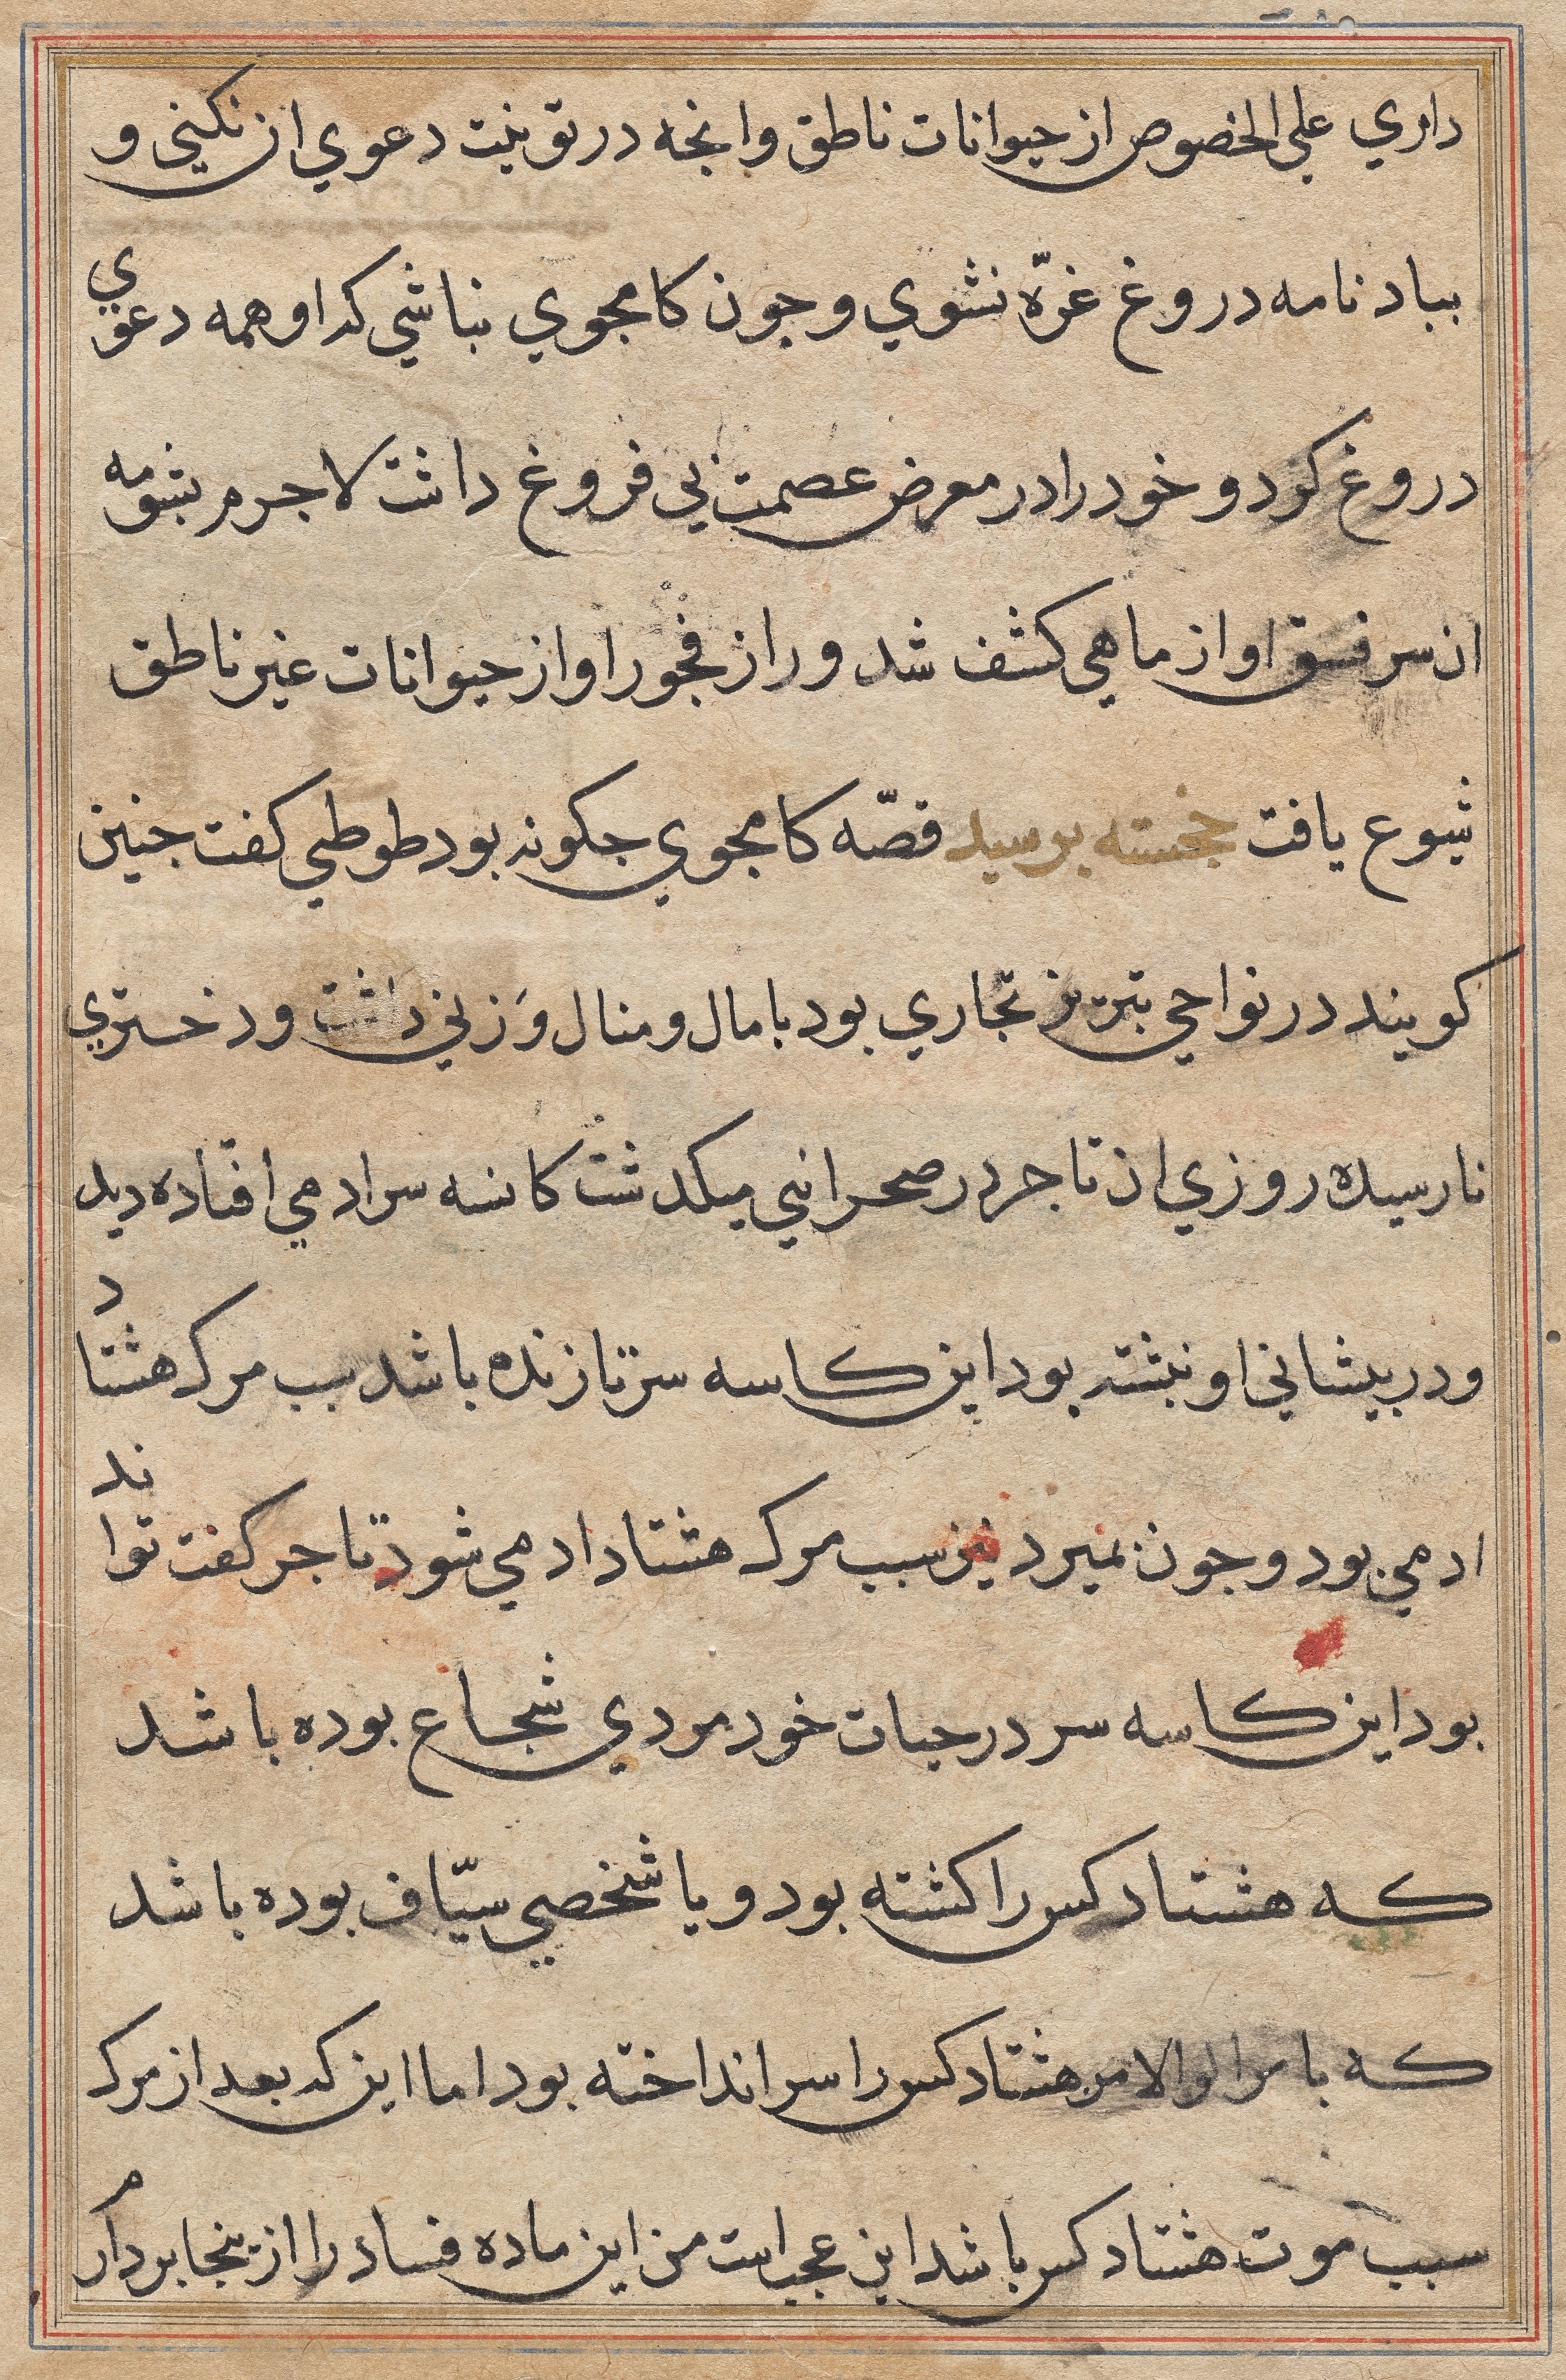 داري علي الخصوص از حيوانات ناطق وانجه در تو نيت دعوي ان نكني و
بباد نامه دروغ غرّه نشوي و جون كامجوي نباشي كه او همه دعوي
دروغ كرد و خود را در معرض عصمت بي فروغ داشت لاجرم بشومه
ان سر فسق او از ماهي كشف شد و راز فجور او از حيوانات غير ناطق
شيوع يافت خجسته برسيد قصّه كامجوي جكونه بود طوطي كفت جنين
كويند در نواحي تبريز تجاري بود با مال و منال وَ زني داشت و دختري
نارسيده روزي ان تاجر در صحرائي ميكدشت كاسه سر ادمي افتاده ديد
و در بيشاني او نبشته بود اين كاسه سر تا زنده باشد سبب مرك هشتاد
ادمي بود و جون بميرد نيز سبب مرك هشتاد ادمي شود تاجر كفت تواند
بود اين كاسه سر در حيات خود مردي شجاع بوده باشد
كه هشتاد كس را كشته بود و يا شخصي سيّاف بوده باشد
كه بامر اولوالامر هشتاد كس را سر انداخته بود اما اين كه بعد از مرك
سبب موت هشتاد كس باشد اين عجب است من اين ماده فساد را از ينجا بردارم